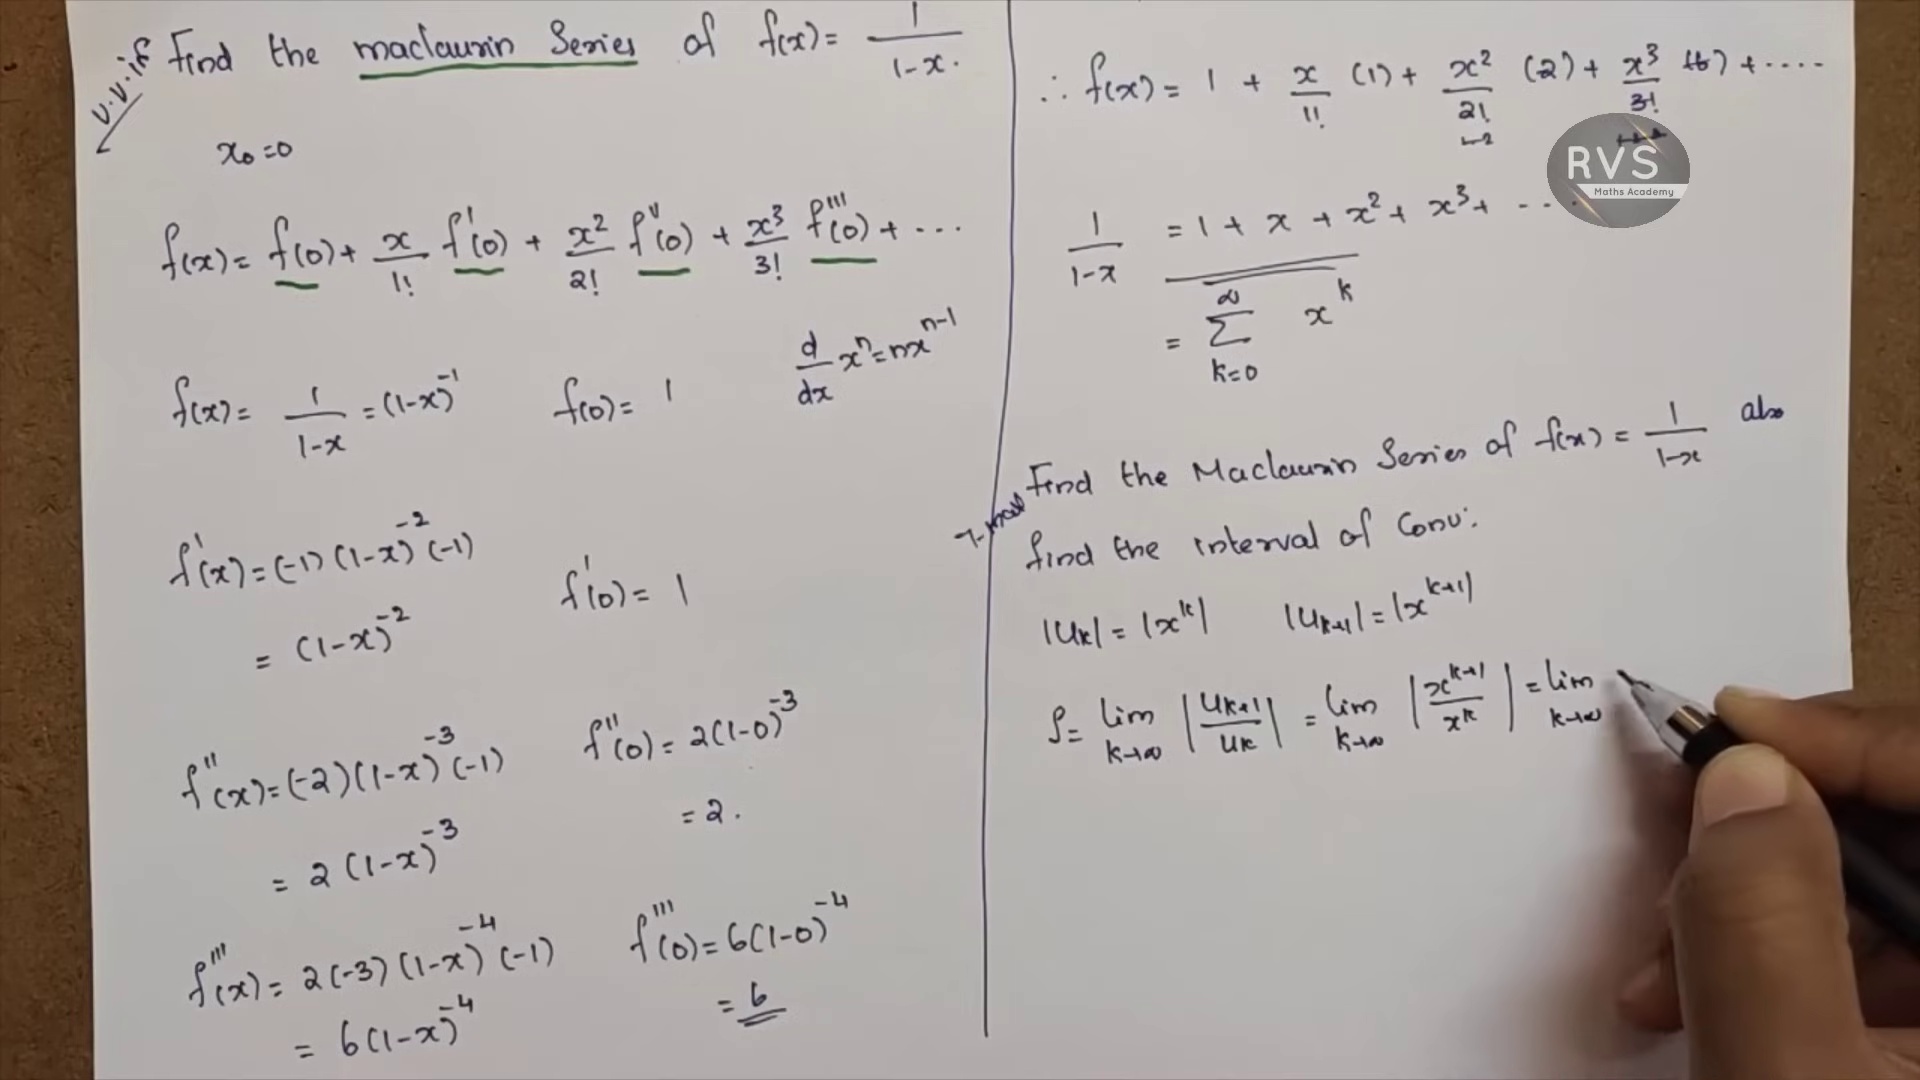 v.v.if Find the maclaurin Series of f(x) = 1/(1-x).
x₀=0
f(x) = f(0) + x/1! f'(0) + x²/2! f''(0) + x³/3! f'''(0) + ...
d/dx xⁿ = nxⁿ⁻¹
f(x) = 1/(1-x) = (1-x)⁻¹ f(0) = 1
f'(x) = (-1)(1-x)⁻²(-1) f'(0) = 1
= (1-x)⁻²
f''(x) = (-2)(1-x)⁻³(-1) f''(0) = 2(1-0)⁻³
= 2.
= 2(1-x)⁻³
f'''(x) = 2(-3)(1-x)⁻⁴(-1) f'''(0) = 6(1-0)⁻⁴
= 6
= 6(1-x)⁻⁴
∴ f(x) = 1 + x/1! (1) + x²/2! (2) + x³/3! (6) + ....
RVS
Maths Academy
1/(1-x) = 1 + x + x² + x³ + ....
= ∞ Σ k=0 xᵏ
Find the Maclaurin Series of f(x) = 1/(1-x) also
find the interval of Conv:
|Uₖ| = |xᵏ| |Uₖ₊₁| = |xᵏ⁺¹|
ρ = lim k→∞ |uₖ₊₁/uₖ| = lim k→∞ |xᵏ⁺¹/xᵏ| = lim k→∞